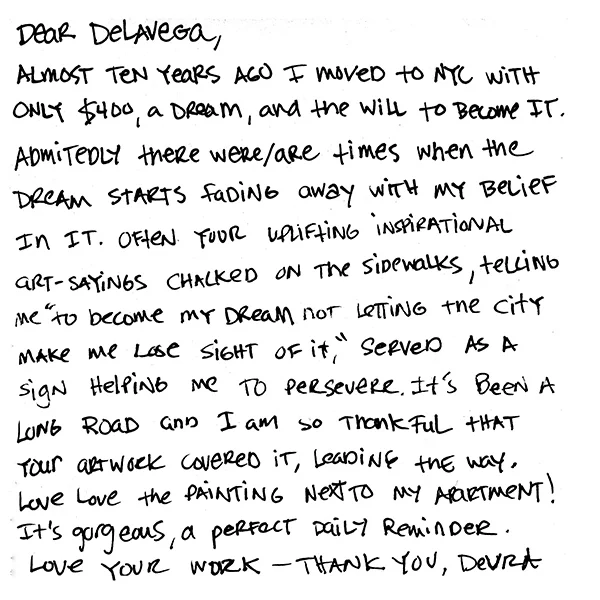 Dear DeLaVega,
Almost ten years ago I moved to NYC with
only $400, a dream, and the will to become it.
Admitedly there were/are times when the
dream starts fading away with my belief
in it. Often your uplifting inspirational
art-sayings chalked on the sidewalks, telling
me "to become my dream not letting the city
make me lose sight of it," served as a
sign helping me to persevere. It's been a
long road and I am so thankful that
your artwork covered it, leading the way.
Love love the painting next to my apartment!
It's gorgeous, a perfect daily reminder.
Love your work – Thank you, Devra